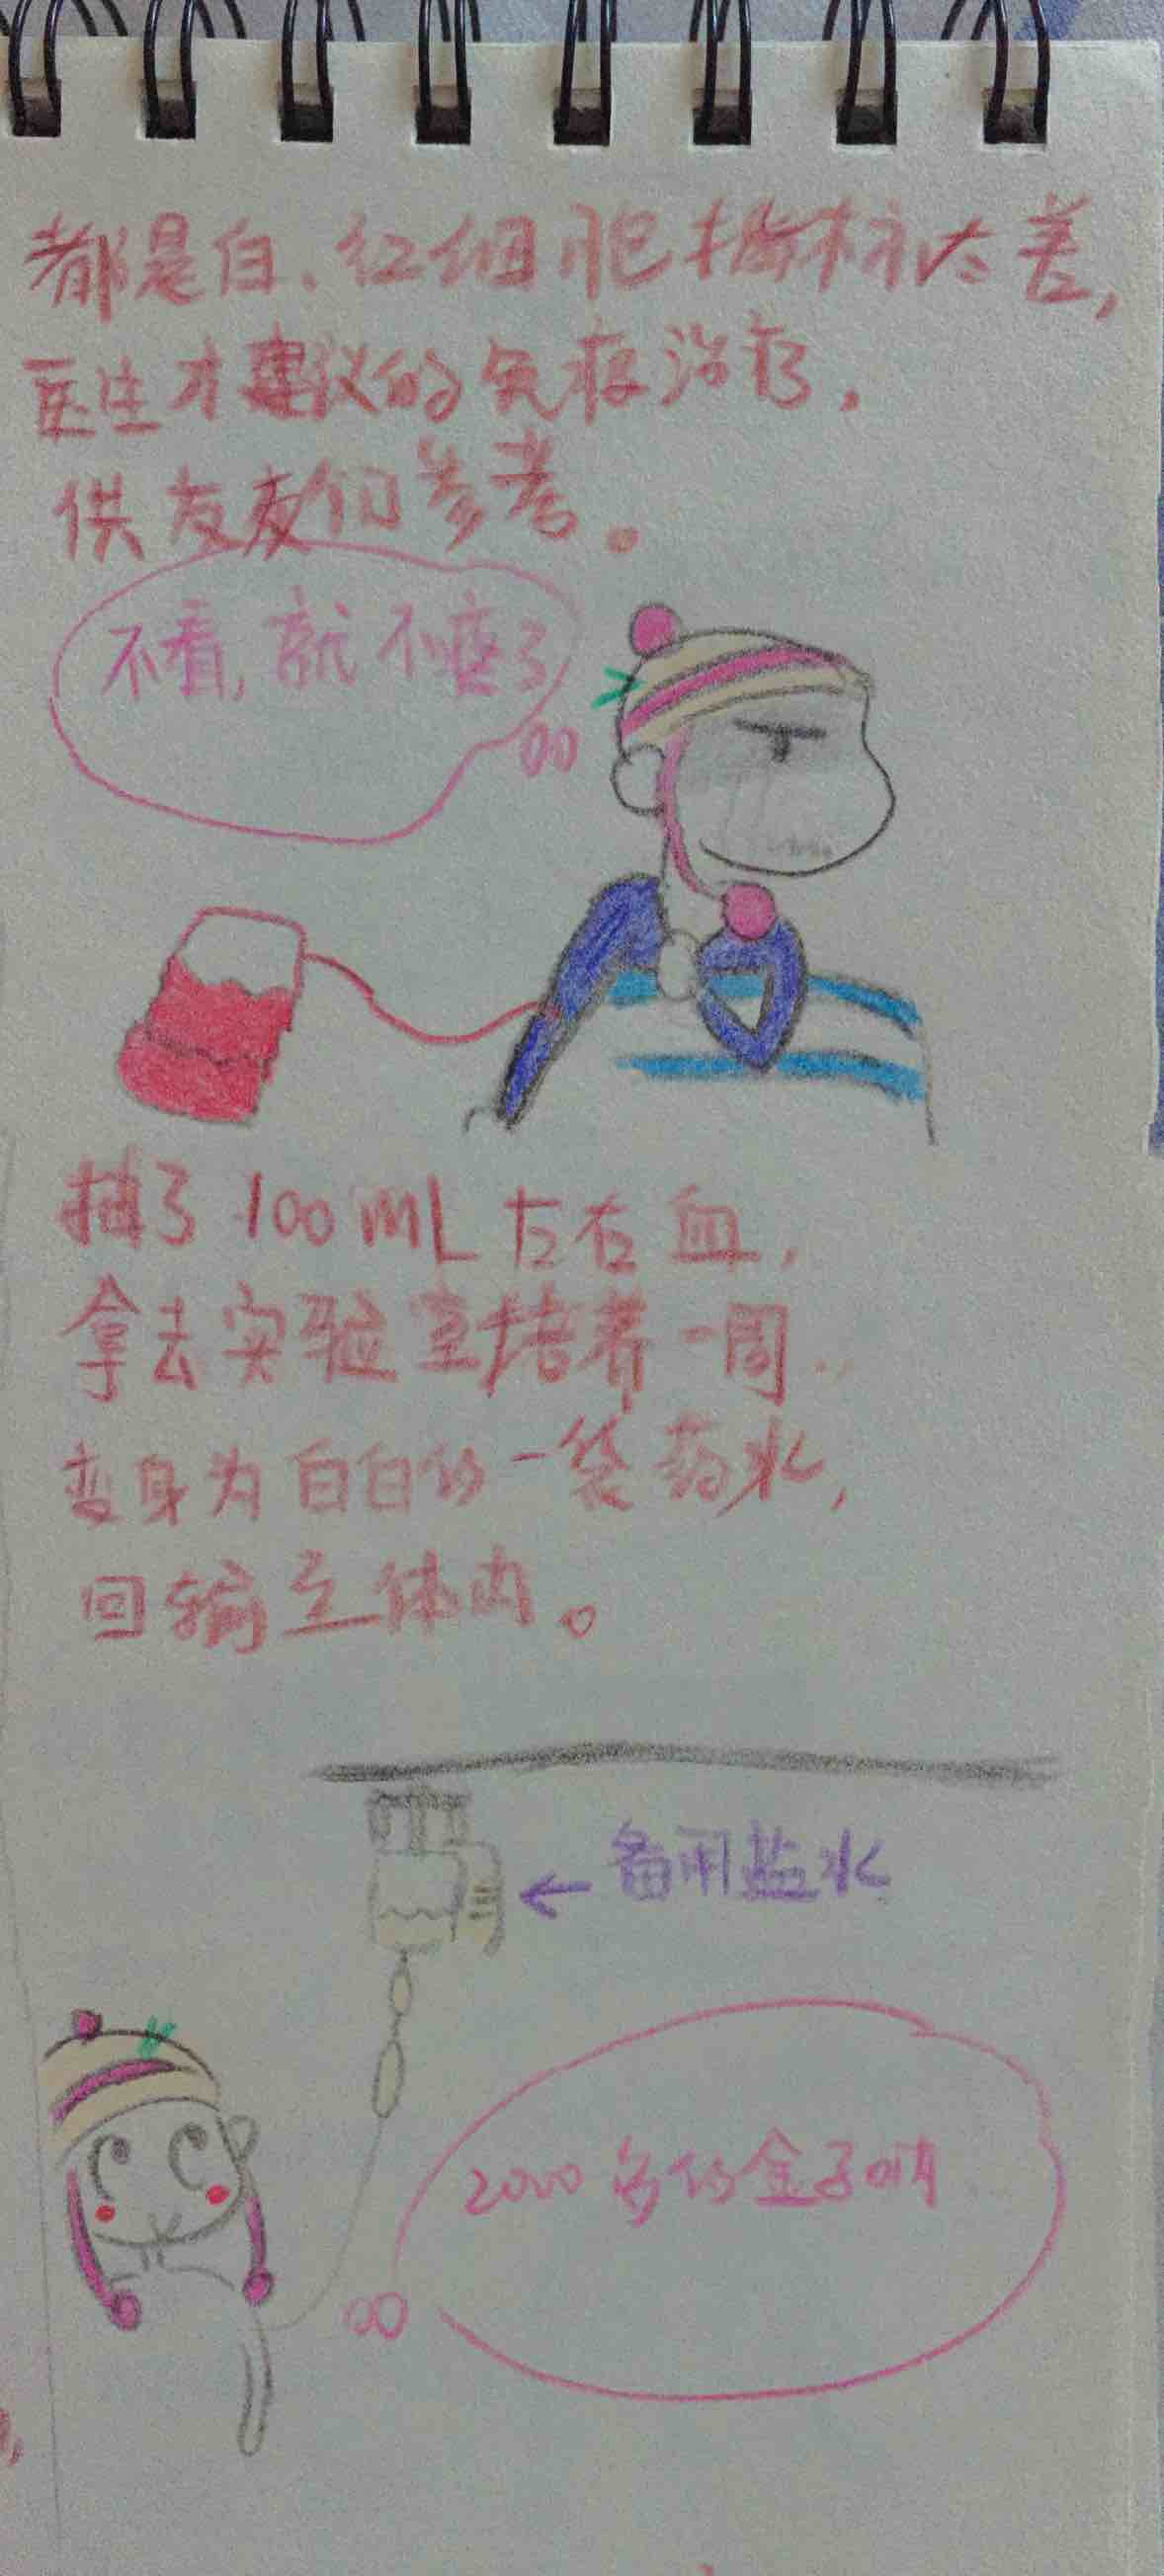 都是白、红细胞指标太差，
医生才建议的免疫治疗，
供友友们参考。
不看，就不痛了
抽了100mL左右血，
拿去实验室培养一周..
变身为白白的一袋药水，
回输至体内。
备用盐水
2000多的金子呐